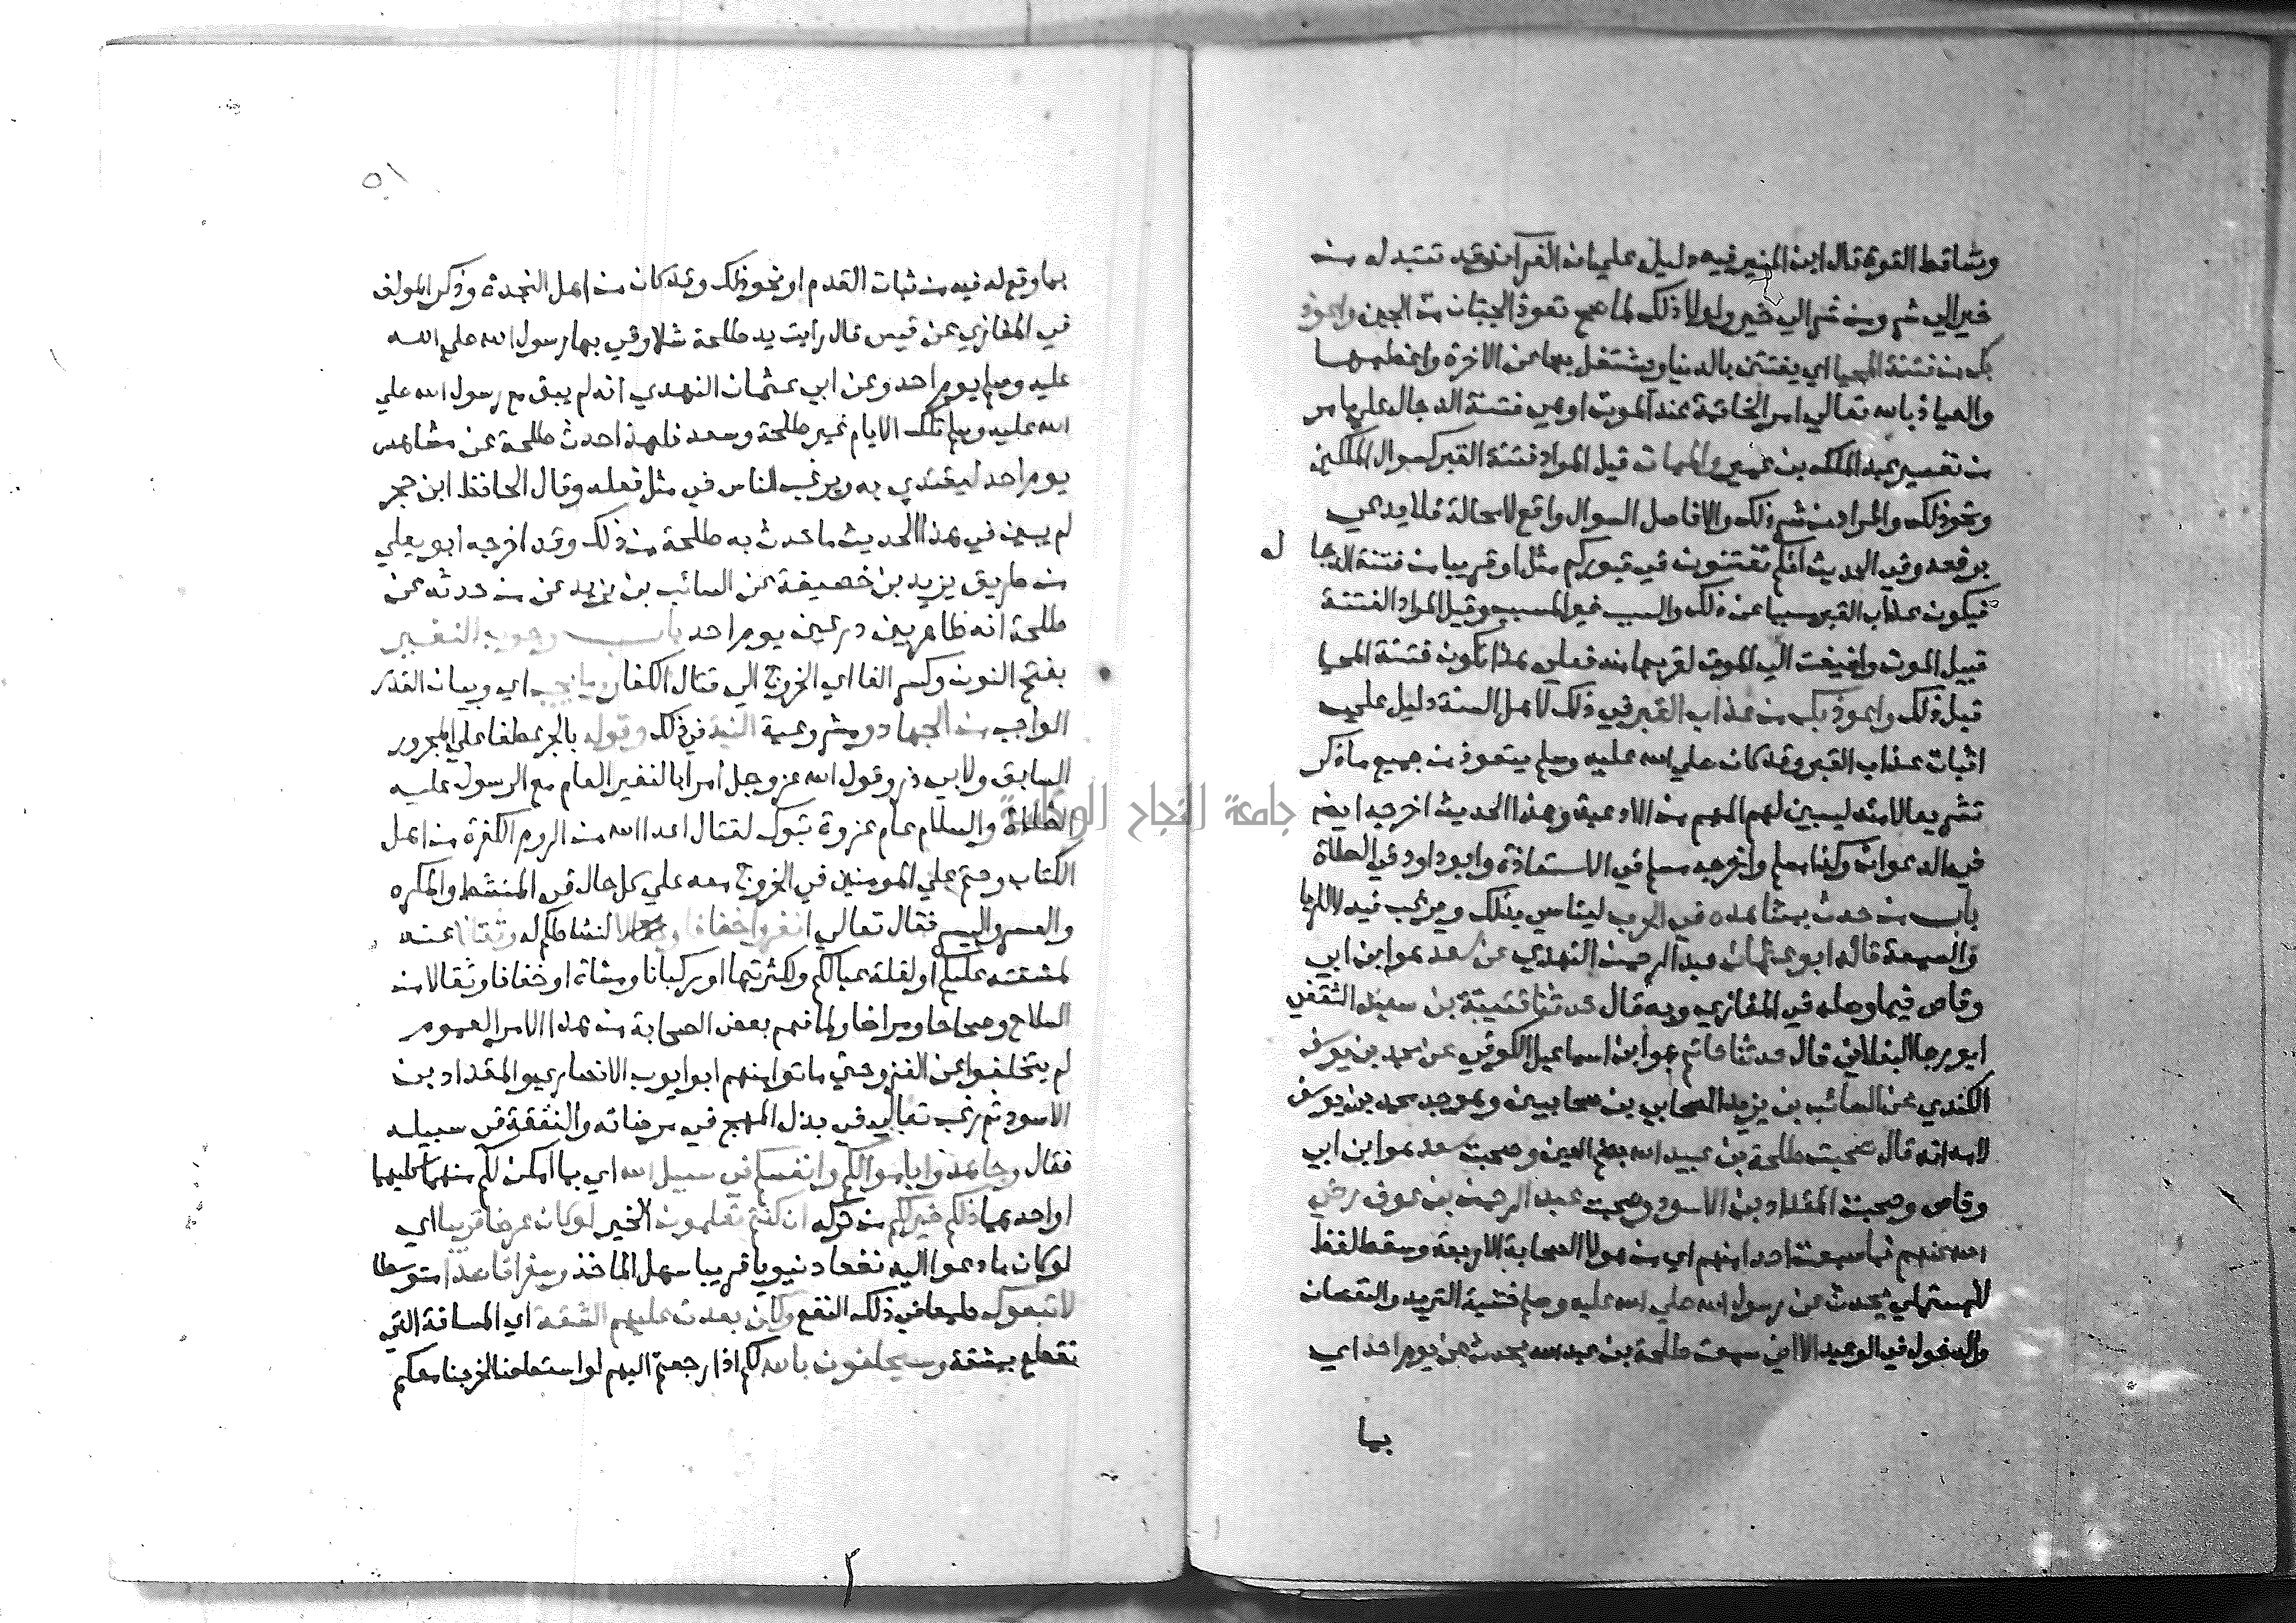 وتساقط القوة قال ابن المنير فيه دليل علي ان الغرائز قد تتبدل من
خير الي شر ومن شر الي خير ولولا ذلك لما صح تعوذ الجبان من الجبن واعوذ
بك من فتنة المحيا اي يفتتن بالدنيا ويشتغل بها عن الاخرة واعظمها
والعياذ بالله تعالي امر الخاتمة عند الموت او هي فتنة الدجال علي ما مر
من تفسير عبد الملك بن عمير والممات قيل المراد فتنة القبر كسوال الملكين
ونحو ذلك والمراد من شر ذلك والا فاصل السوال واقع لا محالة فلا يدعي
برفعه وفي الحديث انكم تفتنون في قبوركم مثل او قريبا من فتنة الدجا ل
فيكون عذاب القبر مسببا عن ذلك والسبب غير المسبب وقيل المراد الفتنة
قبيل الموت واضيفت اليه الموت لقربها منه فعلي هذا تكون فتنة المحيا
قبل ذلك واعوذ بك من عذاب القبر في ذلك لاهل السنة دليل علي
اثبات عذاب القبر وقد كان صلي الله عليه وسلم يتعوذ من جميع ما ذكر
تشريعا لامته ليبين لهم المهم من الادعية وهذا الحديث اخرجه ايضا
في الدعوات وكذا مسلم واخرجه مسلم في الاستعاذة وابو داود في الصلاة
باب من حدث بمشاهده في الحرب ليتاسي بذلك ويرغب فيه لا للريا
والسمعة قاله ابو عثمان عبد الرحمن النهدي عن سعد هو ابن ابي
وقاص فيما وصله في المغازي وبه قال حدثنا قتيبة بن سعيد الثقفي
ابو رجا البغلاني قال حدثنا حاتم هو ابن اسماعيل الكوفي عن محمد بن يوسف
الكندي عن السائب بن يزيد الصحابي بن صحابيين وهو جد محمد بن يوسف
لامه انه قال صحبت طلحة بن عبيد الله بضم العين وصحبت سعد هو ابن ابي
وقاص وصحبت المقداد بن الاسود وصحبت عبد الرحمن بن عوف رضي
الله عنهم فما سمعت احدا منهم اي من هولا الصحابة الاربعة وسقط لفظ
للمستملي يحدث عن رسول الله صلي الله عليه وسلم خشية التزيد والنقصان
والدخول في الوعيد الا اني سمعت طلحة بن عبيد الله يحدث عن يوم احد اي
بما
٥١
بما وقع له فيه من ثبات القدم او نحو ذلك وقد كان من اهل النجدة وذكر المولف
في المغازي عن قيس قال رايت يد طلحة شلا وقي بها رسول الله صلي الله
عليه وسلم يوم احد وعن ابي عثمان النهدي انه لم يبق مع رسول الله صلي
الله عليه وسلم تلك الايام غير طلحة وسعد فلهذا حدث طلحة عن مشاهد
يوم احد ليقتدي به ويرغب الناس في مثل فعله وقال الحافظ ابن حجر
لم يبين في هذا الحديث ما حدث به طلحة من ذلك وقد اخرجه ابو يعلي
من طريق يزيد بن خصيفة عن السائب بن يزيد عن من حدثه عن
طلحة انه ظاهر بين درعين يوم احد باب وجوب النفير
بفتح النون وكسر الفا اي الخروج الي قتال الكفار وما يجب اي وبيان القدر
الواجب من الجهاد ومشروعية النية في ذلك وقوله بالجر عطفا علي المجرور
السابق ولابي ذر وقول الله عز وجل امرا بالنفير العام مع الرسول عليه
الصلاة والسلام عام غزوة تبوك لقتال اعدا الله من الروم الكفرة من اهل
الكتاب وحتم علي المومنين في الخروج معه علي كل حال في المنشط والمكره
والعسر واليسر فقال تعالي انفروا خفافا لنشاطكم له وثقالا عنه
لمشقته عليكم او لقلة عيالكم ولكثرتها او ركبانا ومشاة او خفافا وثقالا من
السلاح وصحاحا ومراضا ولما فهم بعض الصحابة من هذا الامر العموم
لم يتخلفوا عن الغزو حتي ماتوا منهم ابو ايوب الانصاري والمقداد بن
الاسود ثم رغب تعالي في بذل المهج في مرضاته والنفقة في سبيله
فقال وجاهدوا باموالكم وانفسكم في سبيل الله اي بما امكن لكم منهما كليهما
او احدهما ذلكم خير لكم من تركه ان كنتم تعلمون الخير لو كان عرضا قريبا اي
لو كان ما دعوا اليه نفعا دنيويا قريبا سهل الماخذ وسفرا قاصدا متوسطا
لاتبعوك طمعا في ذلك النفع ولكن بعدت عليهم الشقة اي المسافة التي
تقطع بمشقة وسيحلفون بالله لكم اذا رجعتم اليهم لو استطعنا لخرجنا معكم
جامعة النجاح الوطنية